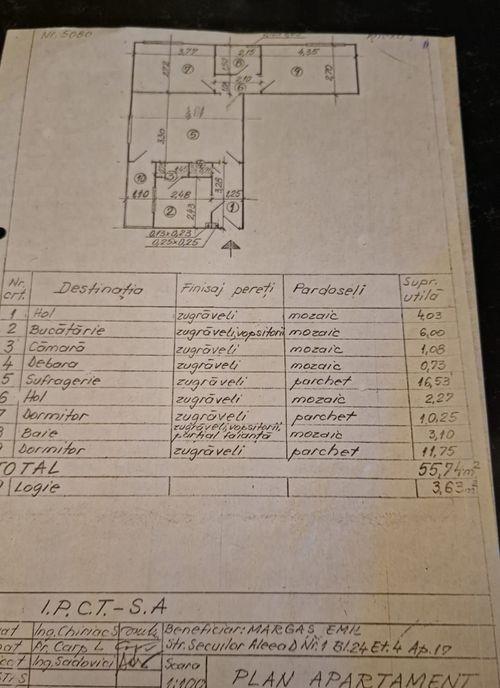 Nr. 5080
3,77
2,15
4,35
2,72
7
8
9
1,50
2,10
2,70
6
5
3,30
10
3
4
3,28
1,10
2,48
1,25
2
2,43
1
0,13x0,23
0,25x0,25
Nr. crt. Destinația Finisaj pereți Pardoseli Supr. utilă
1 Hol zugrăveli mozaic 4,03
2 Bucătărie zugrăveli, vopsitorii mozaic 6,00
3 Cămară zugrăveli mozaic 1,08
4 Debara zugrăveli mozaic 0,73
5 Sufragerie zugrăveli parchet 16,53
6 Hol zugrăveli mozaic 2,27
7 Dormitor zugrăveli parchet 10,25
8 Baie zugrăveli, vopsitorii, parțial faianță mozaic 3,10
9 Dormitor zugrăveli parchet 11,75
TOTAL 55,74 m²
Logie 3,63 m²
I.P.C.T.-S.A
Ing. Chiriac S
Beneficiar: MARGAS EMIL
Pr. Carp L
Str. Secuilor Aleea D Nr. 1 Bl. 24 Et. 4 Ap. 17
Ing. Sadovici
Scara
1:100
PLAN APARTAMENT